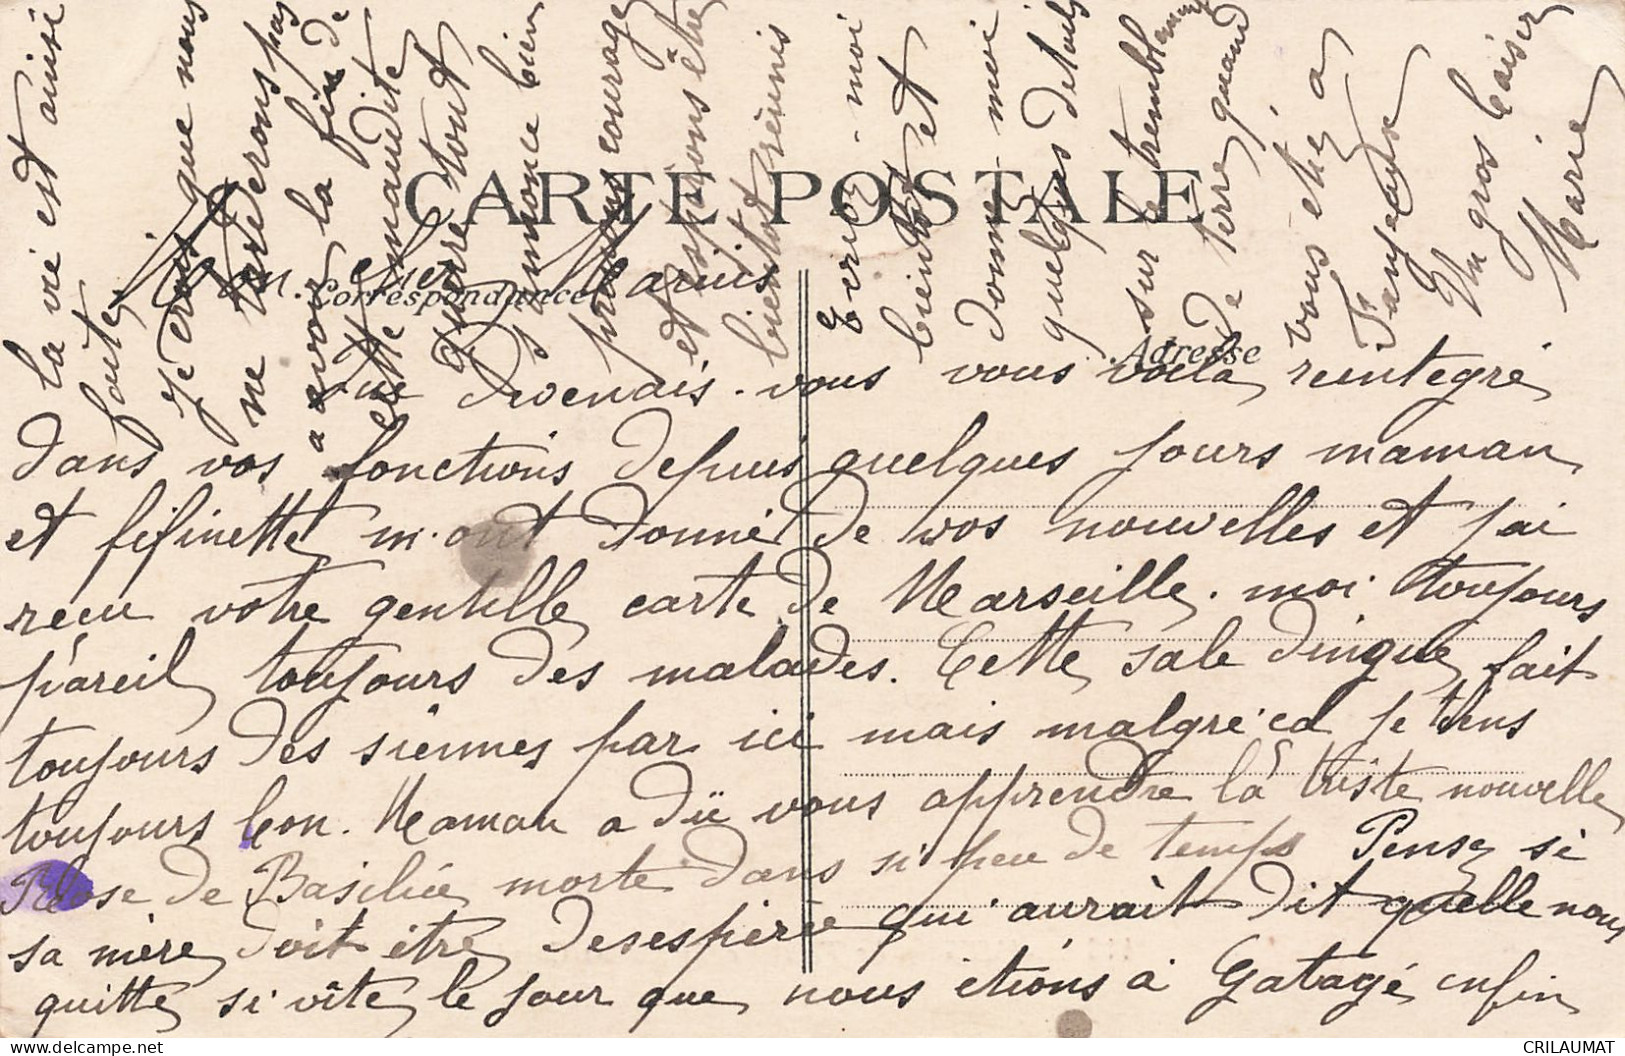 CARTE POSTALE
Correspondance
Adresse
Mon cher Marius
Que devenais-vous vous voila reintegré
dans vos fonctions depuis quelques jours maman
et fifinette m'ont donné de vos nouvelles et j'ai
recu votre gentille carte de Marseille. moi toujours
pareil toujours des malades. Cette sale dingue fait
toujours des siennes par ici mais malgré ca je tiens
toujours bon. Maman a dü vous apprendre la triste nouvelle
Rose de Basilie morte dans si peu de temps Pensez si
sa mère doit être desesperée qui aurait dit quelle nous
quitte si vîte le jour que nous étions à Gatagé enfin
la vie est ainsi
faite
Je crois que nous
ne tarderons pas
a avoir la fin de
cette maudite
guerre tout
s'annonce bien
prenons courage
et espérons être
bientot réunis
Ecriez-moi
bientot et
donnez moi
quelques details
sur le tremblement
de terre quand
vous etiez a
Un gros baiser
Marie
CRILAUMAT